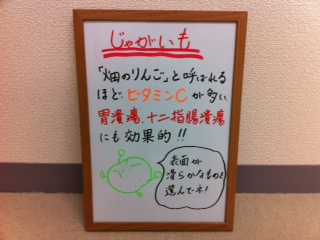 じゃがいも
「畑のりんご」と呼ばれる
ほど、ビタミンCが多い。
胃潰瘍、十二指腸潰瘍
にも効果的!!
表面が
滑らかなものを
選んでネ!